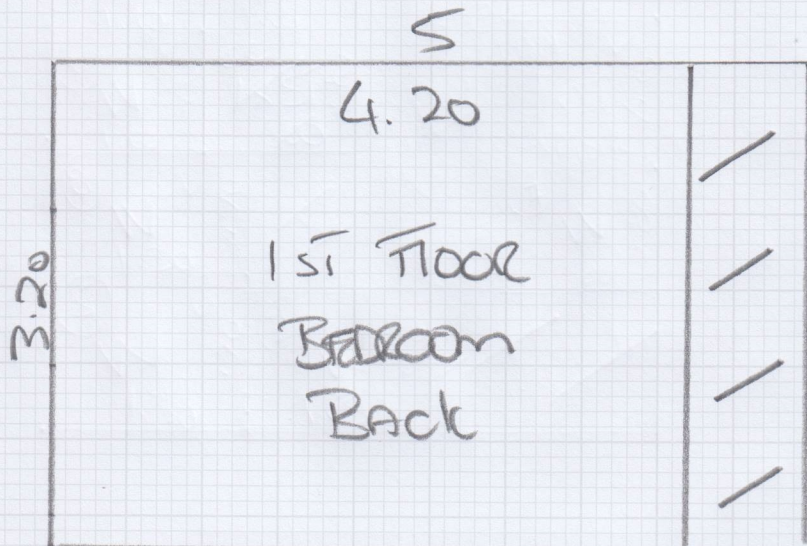 5
4.20
3.20
1ST FLOOR
BEDROOM
BACK